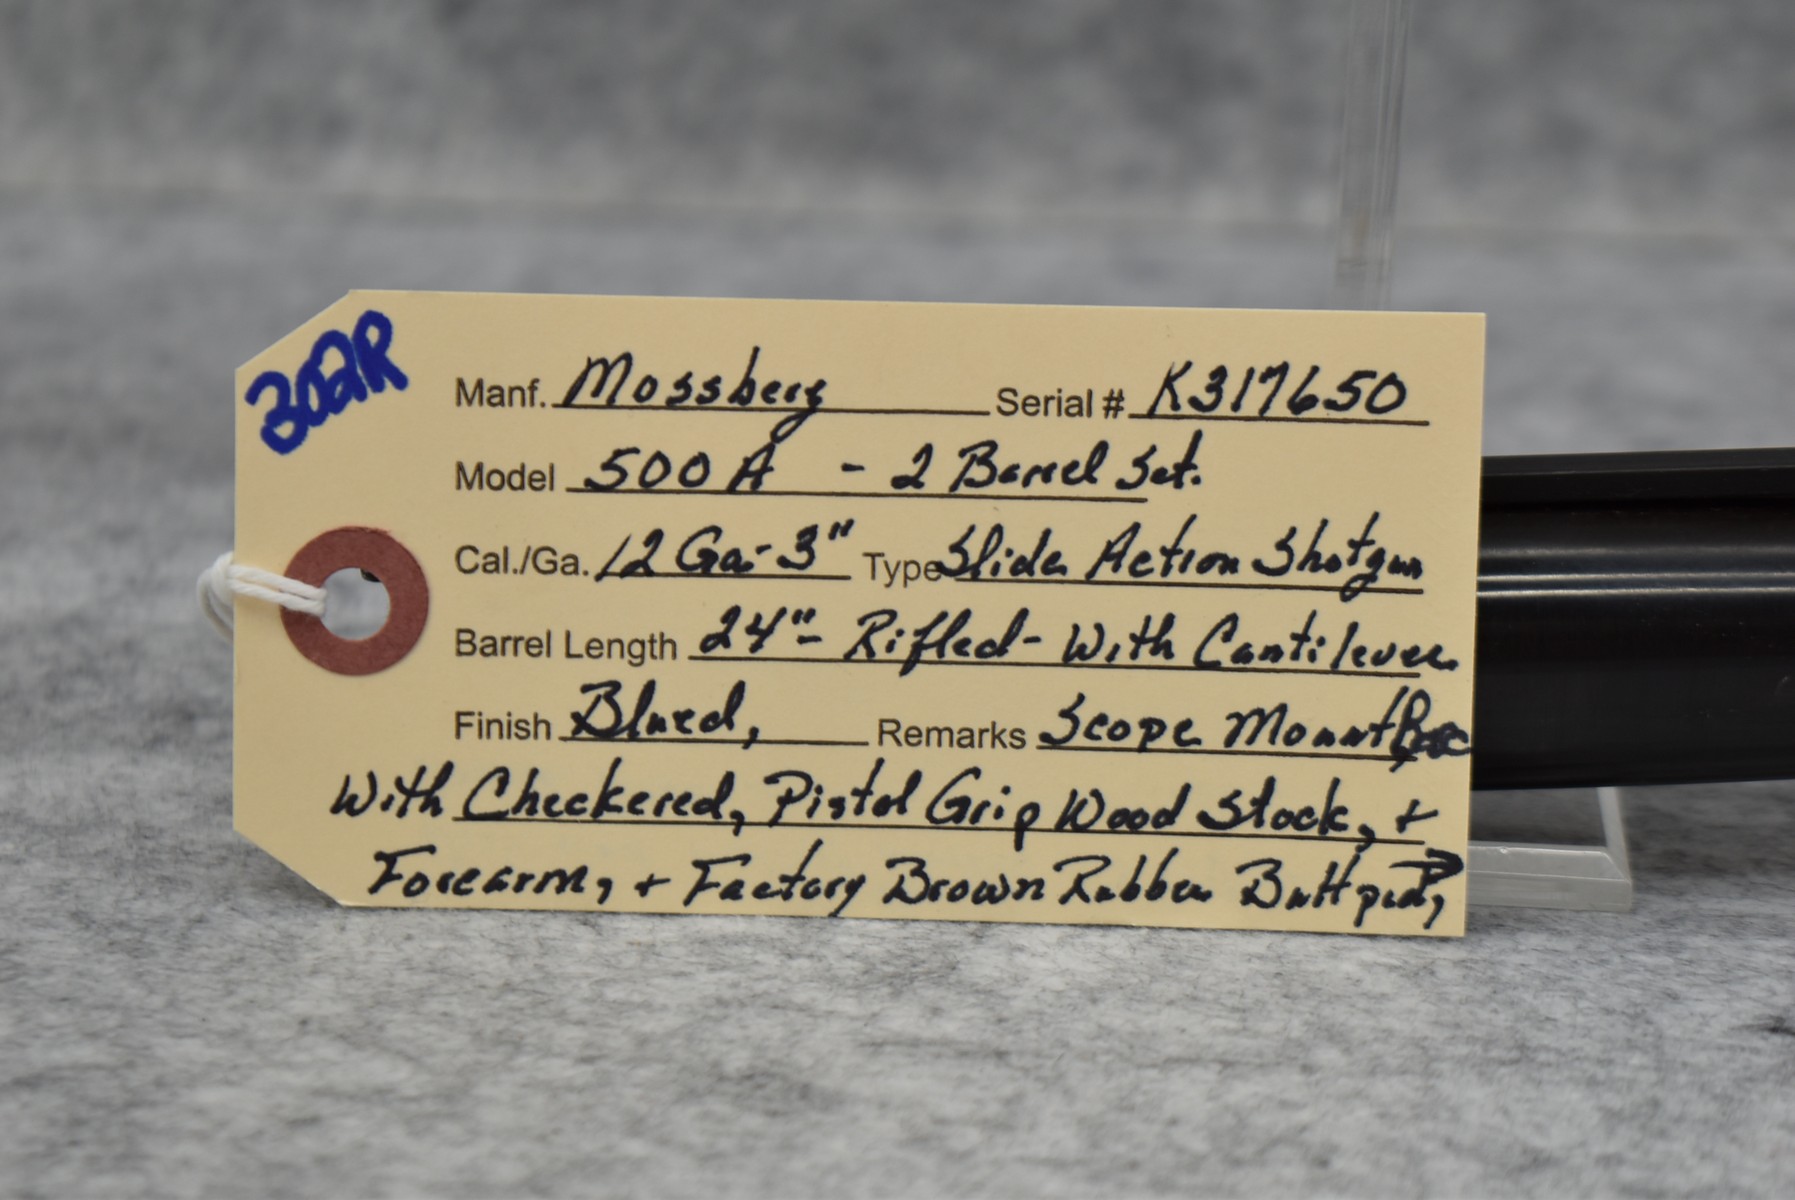 302R
Manf. Mossberg Serial # K317650
Model 500 A - 2 Barrel Set.
Cal./Ga. 12 Ga- 3" Type Slide Action Shotgun
Barrel Length 24"- Rifled- With Cantilever
Finish Blued, Remarks Scope Mount
With Checkered, Pistol Grip Wood Stock, +
Forearm, + Factory Brown Rubber Buttpad,